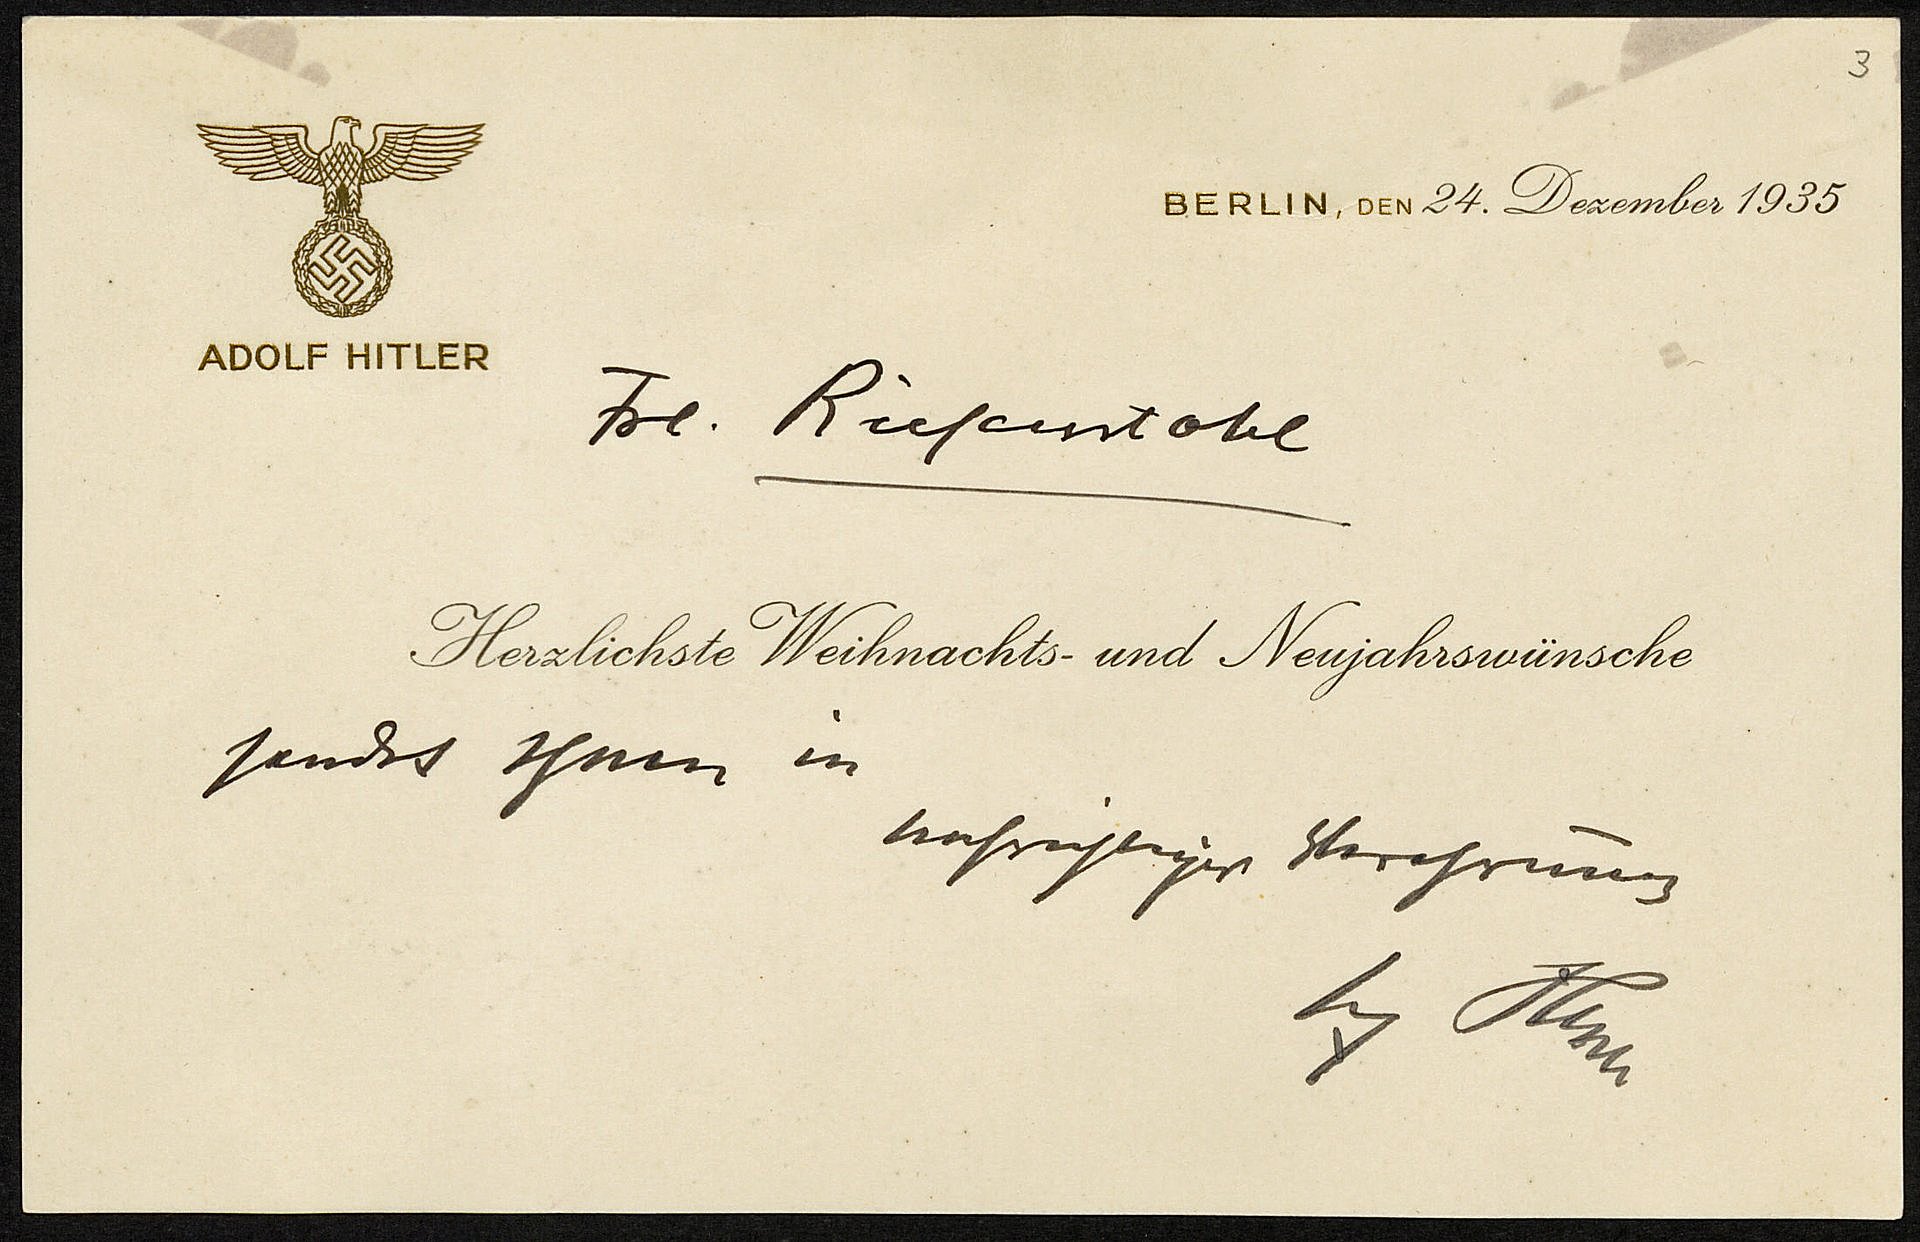 3
BERLIN, DEN 24. Dezember 1935
ADOLF HITLER
Frl. Riefenstahl
Herzlichste Weihnachts- und Neujahrswünsche
sendet Ihnen in
aufrichtiger Verehrung
Ihr